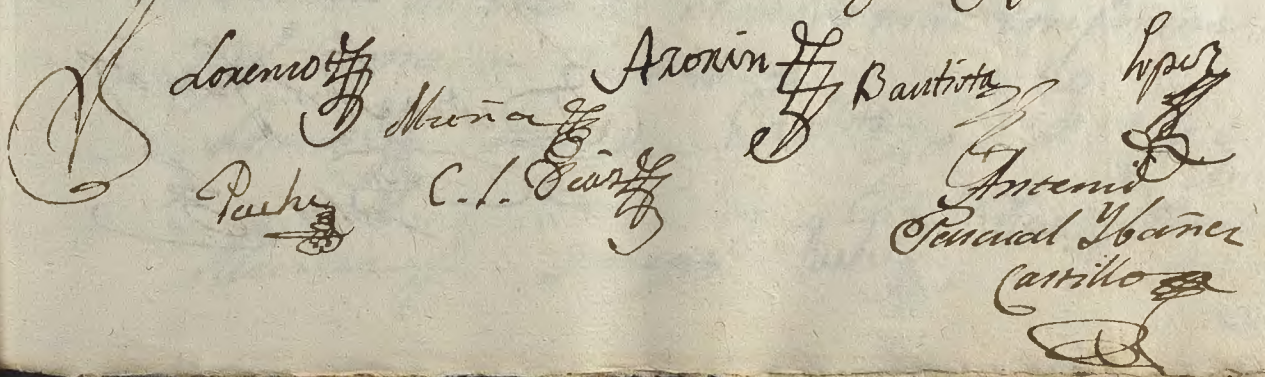 Lorenzo Azorin Bautista Lopez
Muñoz
Puche C. l. Dias
Antemi
Pascual Ybañez
Castillo